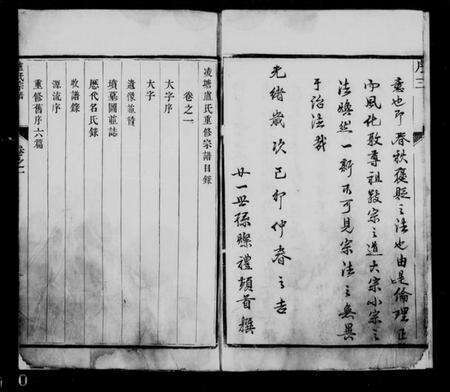 序三
意也即春秋褒貶之法也由是倫理正
而風化敦尊祖敬宗之道大宗小宗之
法煥然一新亦可見宗法之無異
于治法哉
光緒歲次己卯仲春之吉
廿一世孫 禮頓首撰
凌塘盧氏重修宗譜目錄
卷之一
大字序
大字
遺像並贊
墳墓圖並誌
歷代名氏錄
收譜錄
源流序
重修舊序六篇
卷之一
0